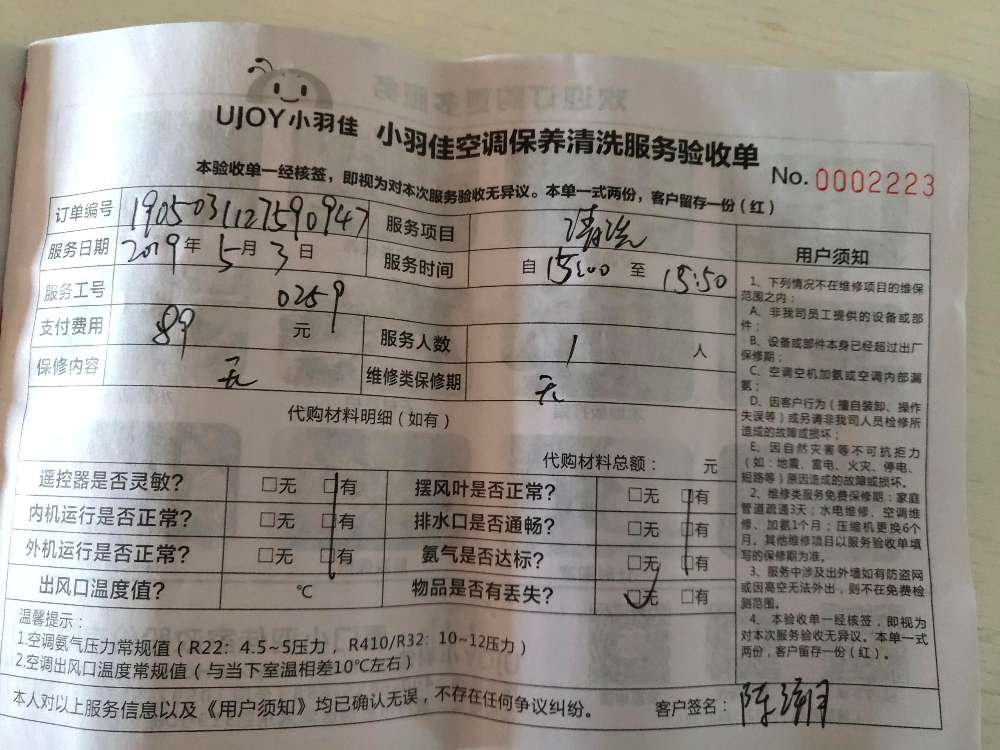 UJOY小羽佳 小羽佳空调保养清洗服务验收单
No.0002223
本验收单一经核签，即视为对本次服务验收无异议。本单一式两份，客户留存一份（红）
订单编号 1905031127590947 服务项目 清洗
服务日期 2019年5月3日 服务时间 自 15:00 至 15:50
服务工号 0259
支付费用 89 元 服务人数 1 人
保修内容 无 维修类保修期 无
代购材料明细（如有）
代购材料总额： 元
遥控器是否灵敏? □无 □有 摆风叶是否正常? □无 □有
内机运行是否正常? □无 □有 排水口是否通畅? □无 □有
外机运行是否正常? □无 □有 氨气是否达标? □无 □有
出风口温度值? ℃ 物品是否有丢失? □无 □有
温馨提示：
1.空调氨气压力常规值（R22：4.5~5压力，R410/R32：10~12压力）
2.空调出风口温度常规值（与当下室温相差10℃左右）
本人对以上服务信息以及《用户须知》均已确认无误，不存在任何争议纠纷。 客户签名：
用户须知
1、下列情况不在维修项目的维保
范围之内：
A、非我司员工提供的设备或部
件；
B、设备或部件本身已经超过出厂
保修期；
C、空调空机加氨或空调内部漏
氨；
D、因客户行为（擅自装卸、操作
失误等）或另请非我司人员检修所
造成的故障或损坏；
E、因自然灾害等不可抗拒力
（如：地震、雷电、火灾、停电、
短路等）原因造成的故障或损坏。
2、维修类服务免费保修期：家庭
管道疏通3天；水电维修、空调维
修、加氨1个月；压缩机更换6个
月，其他维修项目以服务验收单填
写的保修期为准。
3、服务中涉及出外墙如有防盗网
或因高空无法外出，则不在免费检
测范围。
4、本验收单一经核签，即视为
对本次服务验收无异议。本单一式
两份，客户留存一份（红）。